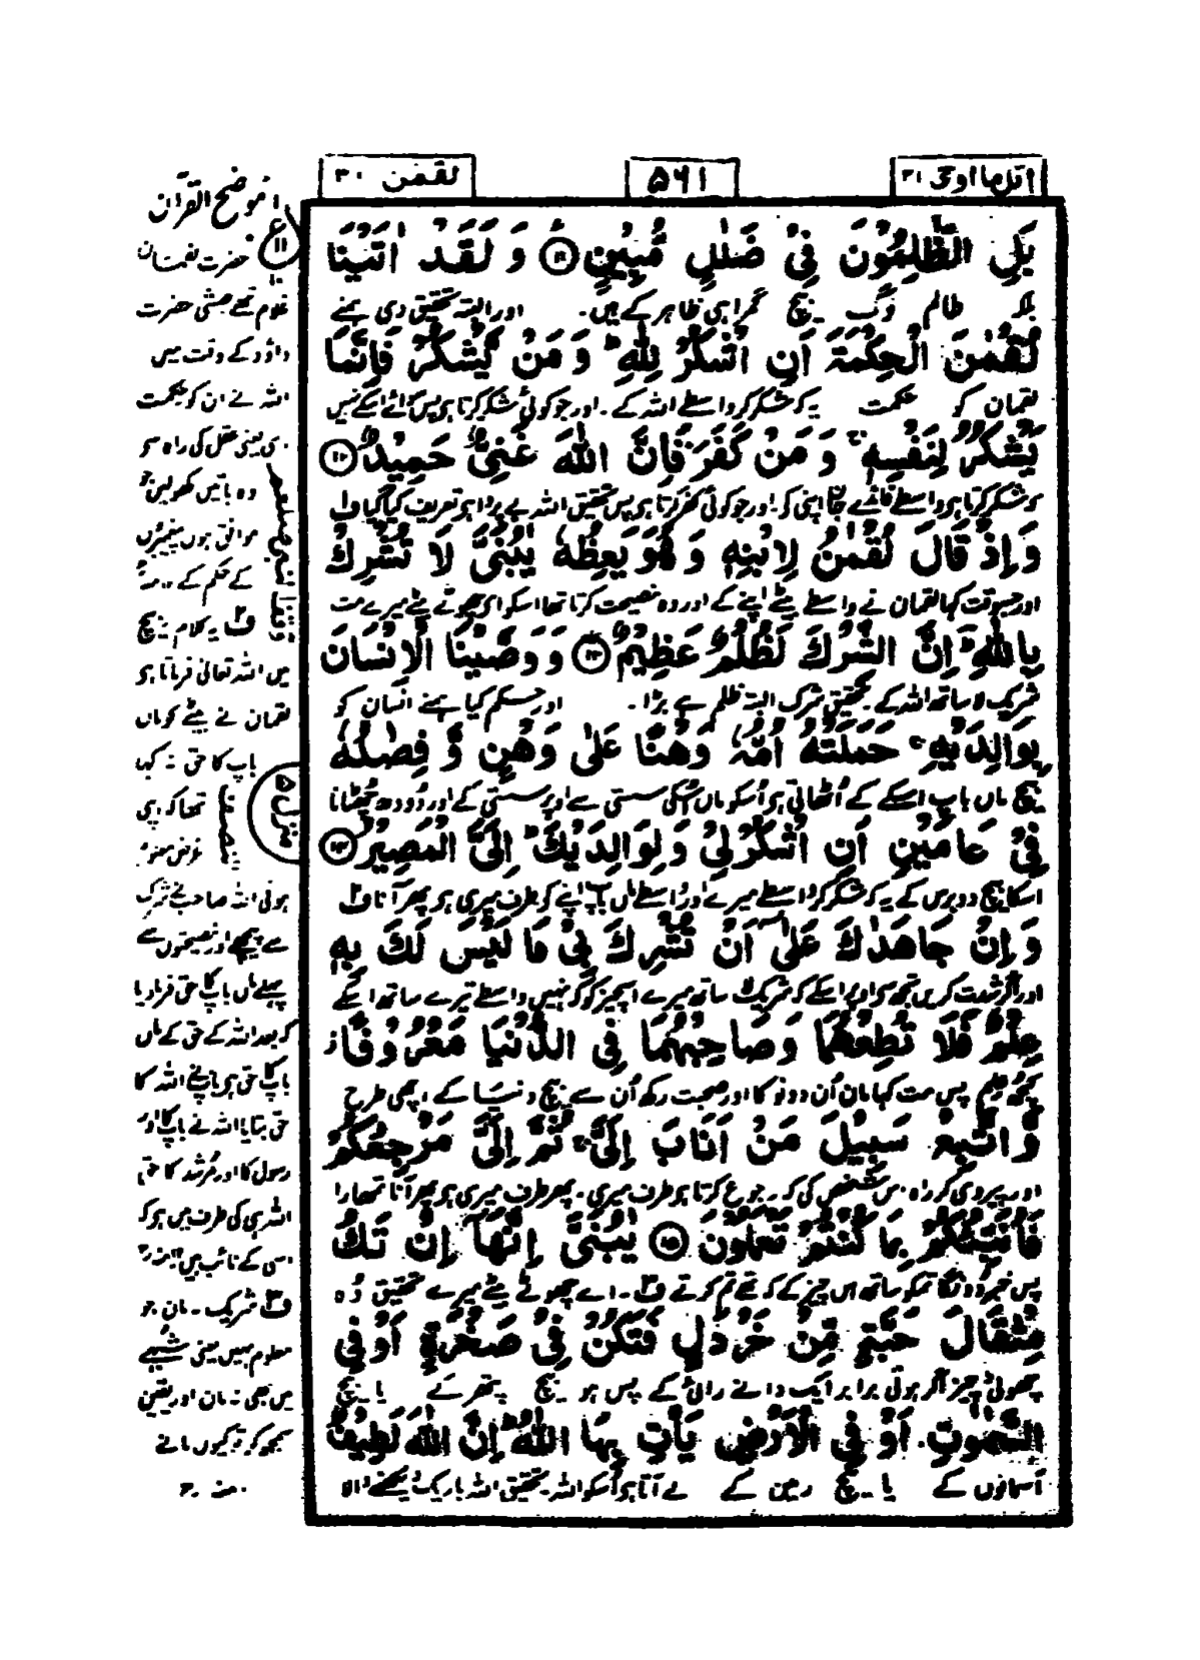 اتل ما اوحی ۲۱
۵۶۱
لقمٰن ۳۱
بَلِ الظّٰلِمُوْنَ فِیْ ضَلٰلٍ مُّبِیْنٍ ۝ وَ لَقَدْ اٰتَیْنَا
بلکہ ظالم لوگ بیچ گمراہی ظاہر کے ہیں۔ اور البتہ تحقیق دی ہمنے
لُقْمٰنَ الْحِكْمَةَ اَنِ اشْكُرْ لِلّٰهِ ؕ وَ مَنْ یَّشْكُرْ فَاِنَّمَا
لقمان کو حکمت یہ کہ شکر کر واسطے اللہ کے۔ اور جو کوئی شکر کرتا ہو پس سوائے اسکے نہیں
یَشْكُرُ لِنَفْسِهٖ ۚ وَ مَنْ كَفَرَ فَاِنَّ اللّٰهَ غَنِیٌّ حَمِیْدٌ ۝
کہ شکر کرتا ہو واسطے فائدے جان اپنی کو۔ اور جو کوئی کفر کرتا ہو پس تحقیق اللہ بے پروا ہو تعریف کیا گیا ف۱
وَ اِذْ قَالَ لُقْمٰنُ لِابْنِهٖ وَ هُوَ یَعِظُهٗ یٰبُنَیَّ لَا تُشْرِكْ
اور جسوقت کہا لقمان نے واسطے بیٹے اپنے کے اور وہ نصیحت کرتا تھا اسکو ای چھوٹے بیٹے میرے مت
بِاللّٰهِ ؔؕ اِنَّ الشِّرْكَ لَظُلْمٌ عَظِیْمٌ ۝ وَ وَصَّیْنَا الْاِنْسَانَ
شریک لا ساتھ اللہ کے۔ تحقیق شرک البتہ ظلم ہے بڑا۔ اور حکم کیا ہمنے انسان کو
بِوَالِدَیْهِ ۚ حَمَلَتْهُ اُمُّهٗ وَهْنًا عَلٰی وَهْنٍ وَّ فِصٰلُهٗ
بیچ ماں باپ اسکے کے اُٹھاتی ہو اُسکو ماں اُسکی سستی سے اوپر سستی کے اور دودھ چھٹانا
فِیْ عَامَیْنِ اَنِ اشْكُرْ لِیْ وَ لِوَالِدَیْكَ ؕ اِلَیَّ الْمَصِیْرُ ۝
اسکا بیچ دو برس کے یہ کہ شکر کر واسطے میرے اور واسطے ماں باپ اپنے کو طرف میری ہو پھر آنا ف۲
وَ اِنْ جَاهَدٰكَ عَلٰۤی اَنْ تُشْرِكَ بِیْ مَا لَیْسَ لَكَ بِهٖ
اور اگر شدت کریں تجھ کو اوپر اسکے کہ شریک لا ساتھ میرے اسچیز کو کہ نہیں واسطے تیرے ساتھ اسکے
عِلْمٌ فَلَا تُطِعْهُمَا وَ صَاحِبْهُمَا فِی الدُّنْیَا مَعْرُوْفًا ؗ
کچھ علم پس مت کہا مان اُن دونو کا اور صحبت رکھ اُن سے بیچ دنیا کے اچھی طرح
وَّ اتَّبِعْ سَبِیْلَ مَنْ اَنَابَ اِلَیَّ ۚ ثُمَّ اِلَیَّ مَرْجِعُكُمْ
اور پیروی کر راہ اس شخص کی کہ رجوع کرتا ہو طرف میری۔ پھر طرف میری ہو پھر آنا تمھارا
فَاُنَبِّئُكُمْ بِمَا كُنْتُمْ تَعْمَلُوْنَ ۝ یٰبُنَیَّ اِنَّهَاۤ اِنْ تَكُ
پس خبر دونگا تمکو ساتھ اس چیز کے کہ تھے تم کرتے ف۳۔ اے چھوٹے بیٹے میرے تحقیق وُہ
مِثْقَالَ حَبَّةٍ مِّنْ خَرْدَلٍ فَتَكُنْ فِیْ صَخْرَةٍ اَوْ فِی
چھوٹی چیز اگر ہوتی برابر ایک دانے رائی کے پس ہو بیچ پتھر کے یا بیچ
السَّمٰوٰتِ اَوْ فِی الْاَرْضِ یَاْتِ بِهَا اللّٰهُ ؕ اِنَّ اللّٰهَ لَطِیْفٌ
آسمانوں کے یا بیچ زمین کے لے آتا ہو اُسکو اللہ۔ تحقیق اللہ باریک دیکھنے والا
موضح القرآن
ع ۱۱
حضرت لقمان
غلام تھے حبشی حضرت
داؤد کے وقت میں
اللہ نے ان کو حکمت
دی یعنی عقل کی راہ سے
وہ باتیں کھولیں جو
موافق ہوں پیغمبروں
کے حکم کے
ف۲ یہ کلام بیچ
میں اللہ تعالیٰ فرماتا ہو
لقمان نے بیٹے کو ماں
باپ کا حق نہ کہا
تھا کہ اپنی
غرض معلوم
ہوتی اللہ صاحب نے شرک
سے پیچھے اور نصیحتوں سے
پہلے ماں باپ کا حق فرما دیا
کہ بعد اللہ کے حق کے ماں
باپ کا حق ہو باپ نے اللہ کا
حق بتایا اللہ نے باپ کا اور
رسول کا اور مُرشد کا حق
اللہ ہی کی طرف میں ہو کہ
اسی کے نائب ہیں
ف۳ شریک نہ مان جو
معلوم نہیں یعنی شبہے
میں بھی نہ مان اور یقین
سمجھ کر تو کیوں مانے
منہ رح